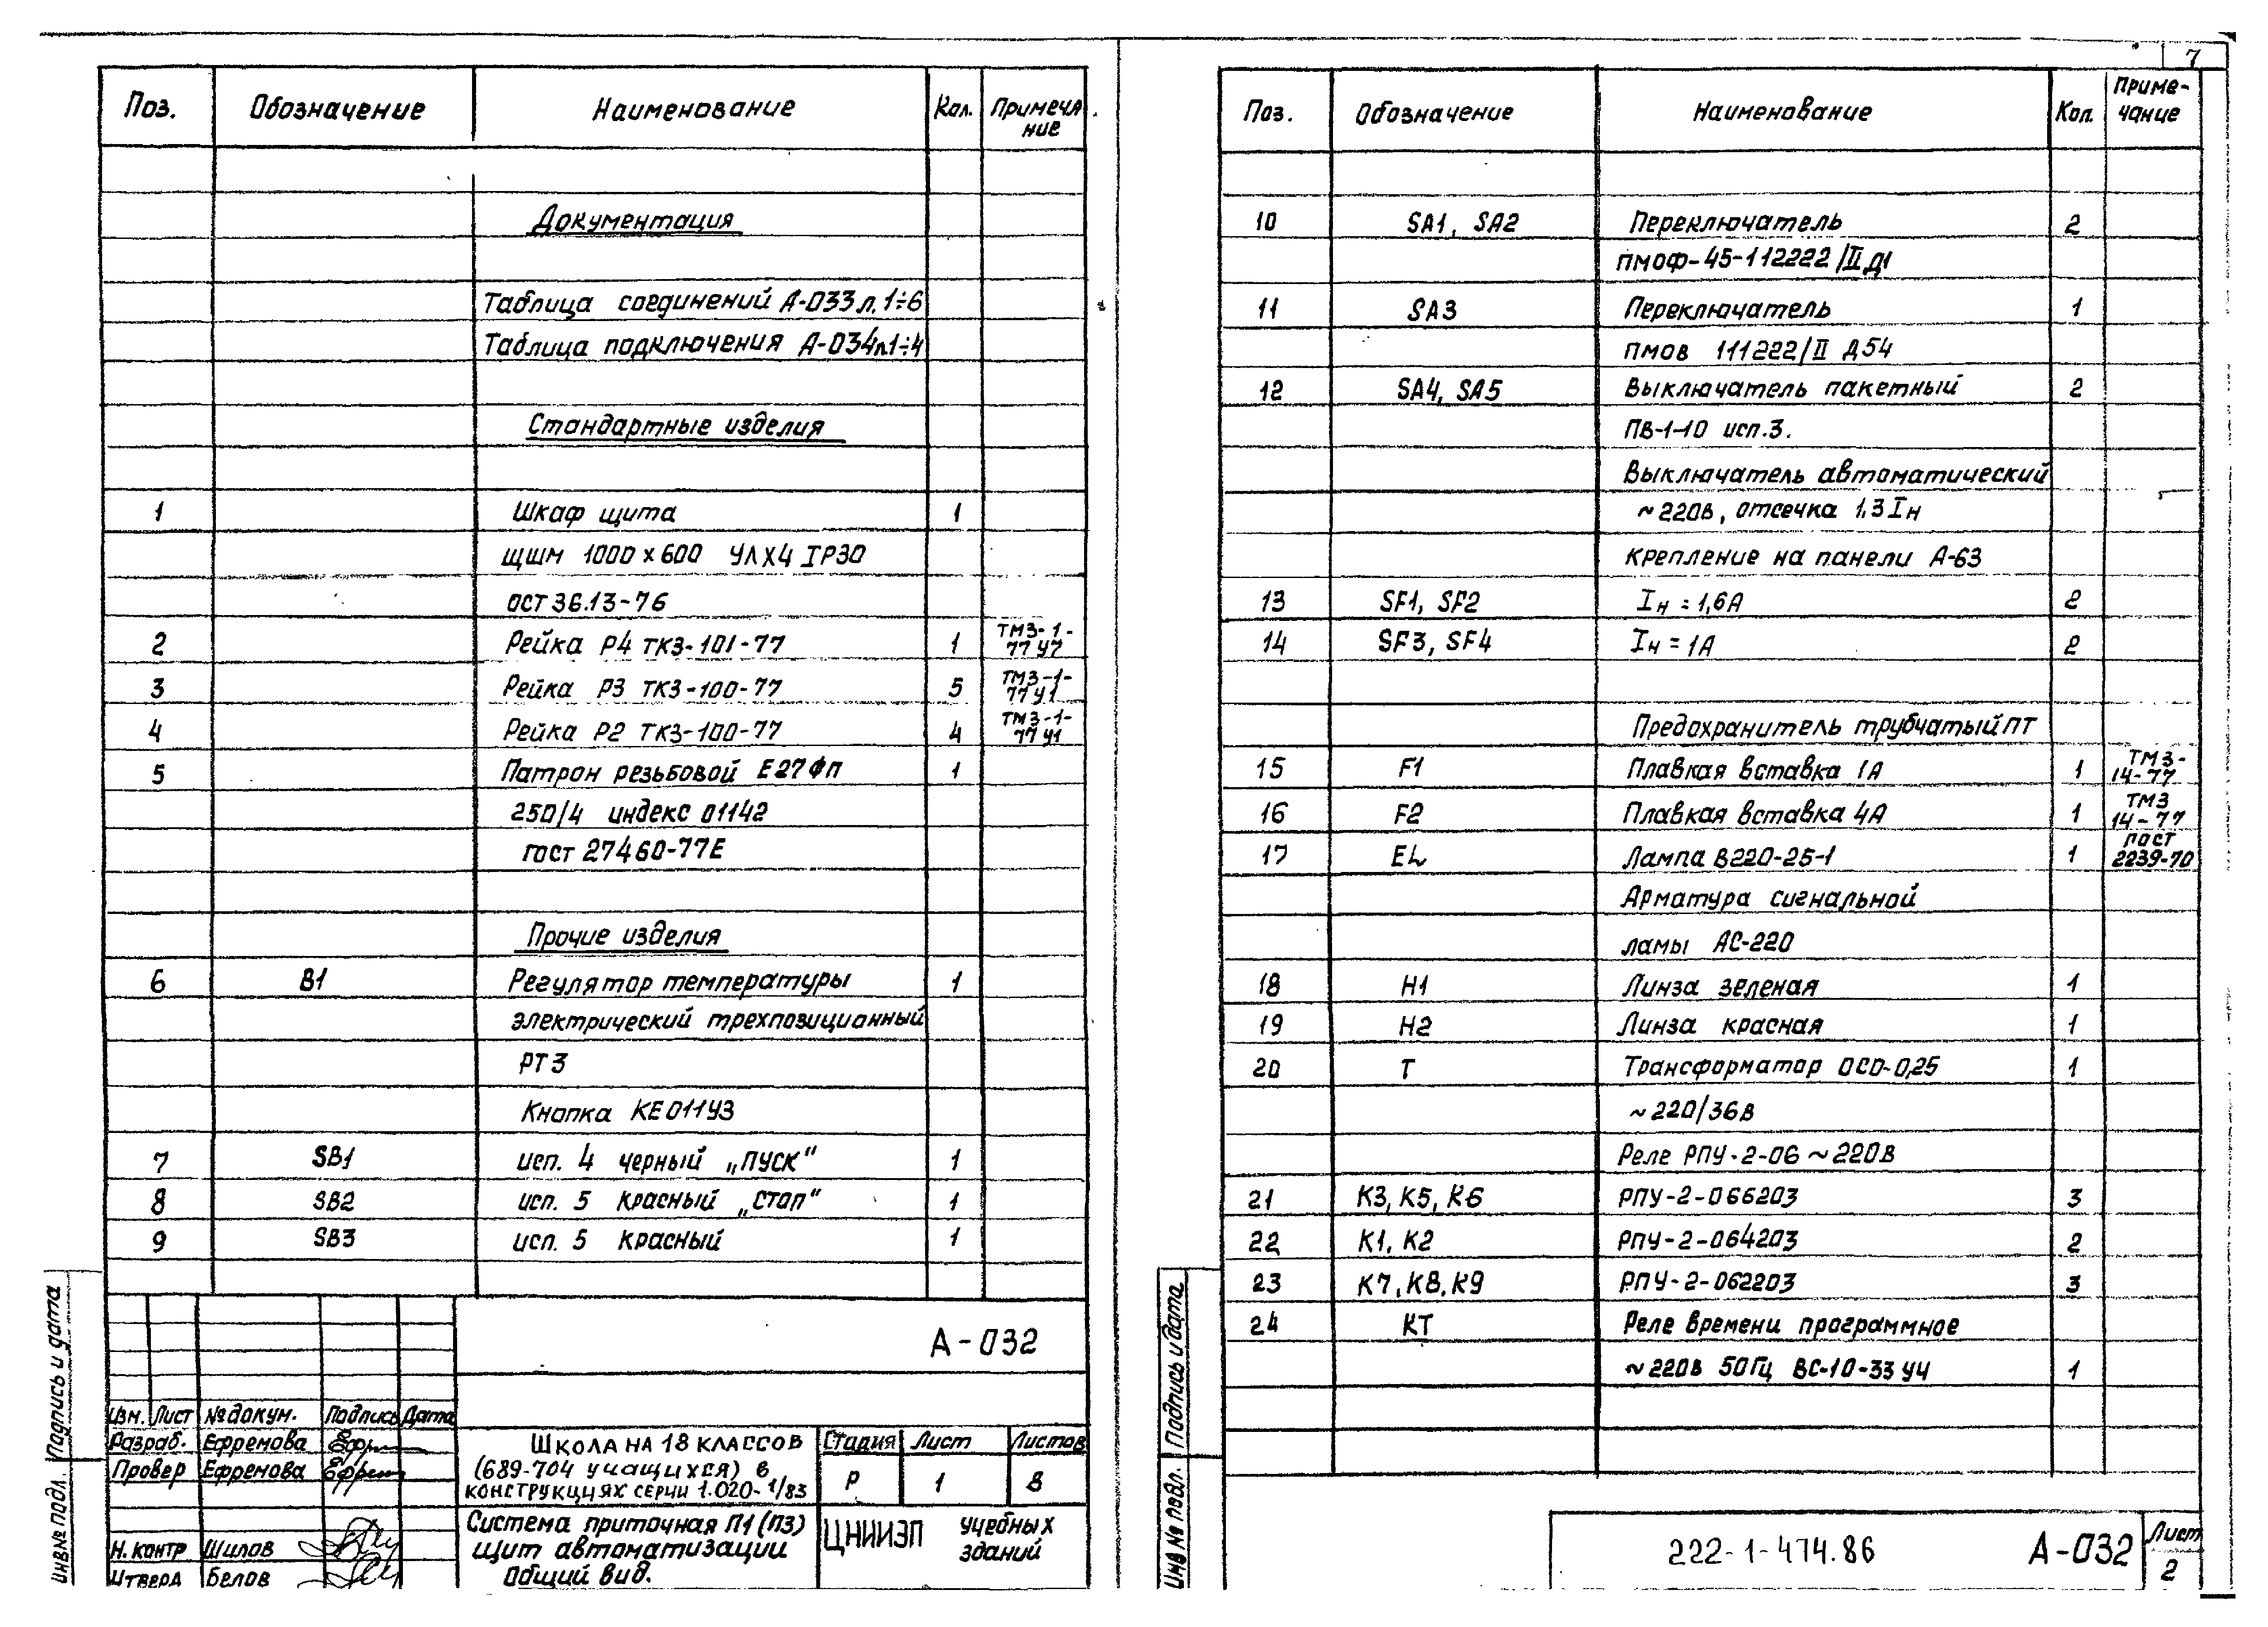 7
Поз. Обозначение Наименование Кол. Примеча
ние
Документация
Таблица соединений А-033 л. 1÷6
Таблица подключения А-034 л1÷4
Стандартные изделия
1 Шкаф щита 1
ЩШМ 1000 х 600 УЛХ4 IP30
ОСТ 36.13-76
2 Рейка Р4 ТК3-101-77 1 ТМ3-1-
77 У7
3 Рейка Р3 ТК3-100-77 5 ТМ3-1-
77 У1
4 Рейка Р2 ТК3-100-77 4 ТМ3-1-
77 У1
5 Патрон резьбовой Е27ФП 1
250/4 индекс 01142
ГОСТ 27460-77Е
Прочие изделия
6 В1 Регулятор температуры 1
электрический трехпозиционный
РТ3
Кнопка КЕ011У3
7 SB1 исп. 4 черный „ПУСК" 1
8 SB2 исп. 5 красный „Стоп" 1
9 SB3 исп. 5 красный 1
А-032
Изм. Лист №докум. Подпись Дата
Разраб. Ефремова
Провер Ефремова
Н. контр Шилов
Утверд Белов
Школа на 18 классов
(689-704 учащихся) в
конструкциях серии 1.020-1/83
Стадия Лист Листов
Р 1 8
Система приточная П1 (П3)
щит автоматизации
Общий вид.
ЦНИИЭП учебных
зданий
Инв№ подл. Подпись и дата
Поз. Обозначение Наименование Кол. Приме-
чание
10 SA1, SA2 Переключатель 2
ПМОФ-45-112222/II Д1
11 SA3 Переключатель 1
ПМОВ 111222/II Д54
12 SA4, SA5 Выключатель пакетный 2
ПВ-1-10 исп.3.
Выключатель автоматический
~220В, отсечка 1,3 Iн
крепление на панели А-63
13 SF1, SF2 Iн = 1,6А 2
14 SF3, SF4 Iн = 1А 2
Предохранитель трубчатый ПТ
15 F1 Плавкая вставка 1А 1 ТМ3-
14-77
16 F2 Плавкая вставка 4А 1 ТМ3
14-77
17 EL Лампа В220-25-1 1 ГОСТ
2239-70
Арматура сигнальной
ламы АС-220
18 Н1 Линза зеленая 1
19 Н2 Линза красная 1
20 Т Трансформатор ОСО-0,25 1
~220/36В
Реле РПУ-2-06 ~220В
21 К3, К5, К6 РПУ-2-066203 3
22 К1, К2 РПУ-2-064203 2
23 К7, К8, К9 РПУ-2-062203 3
24 КТ Реле времени программное
~220В 50Гц ВС-10-33 У4 1
222-1-474.86 А-032 Лист
2
Инв № подл. Подпись и дата